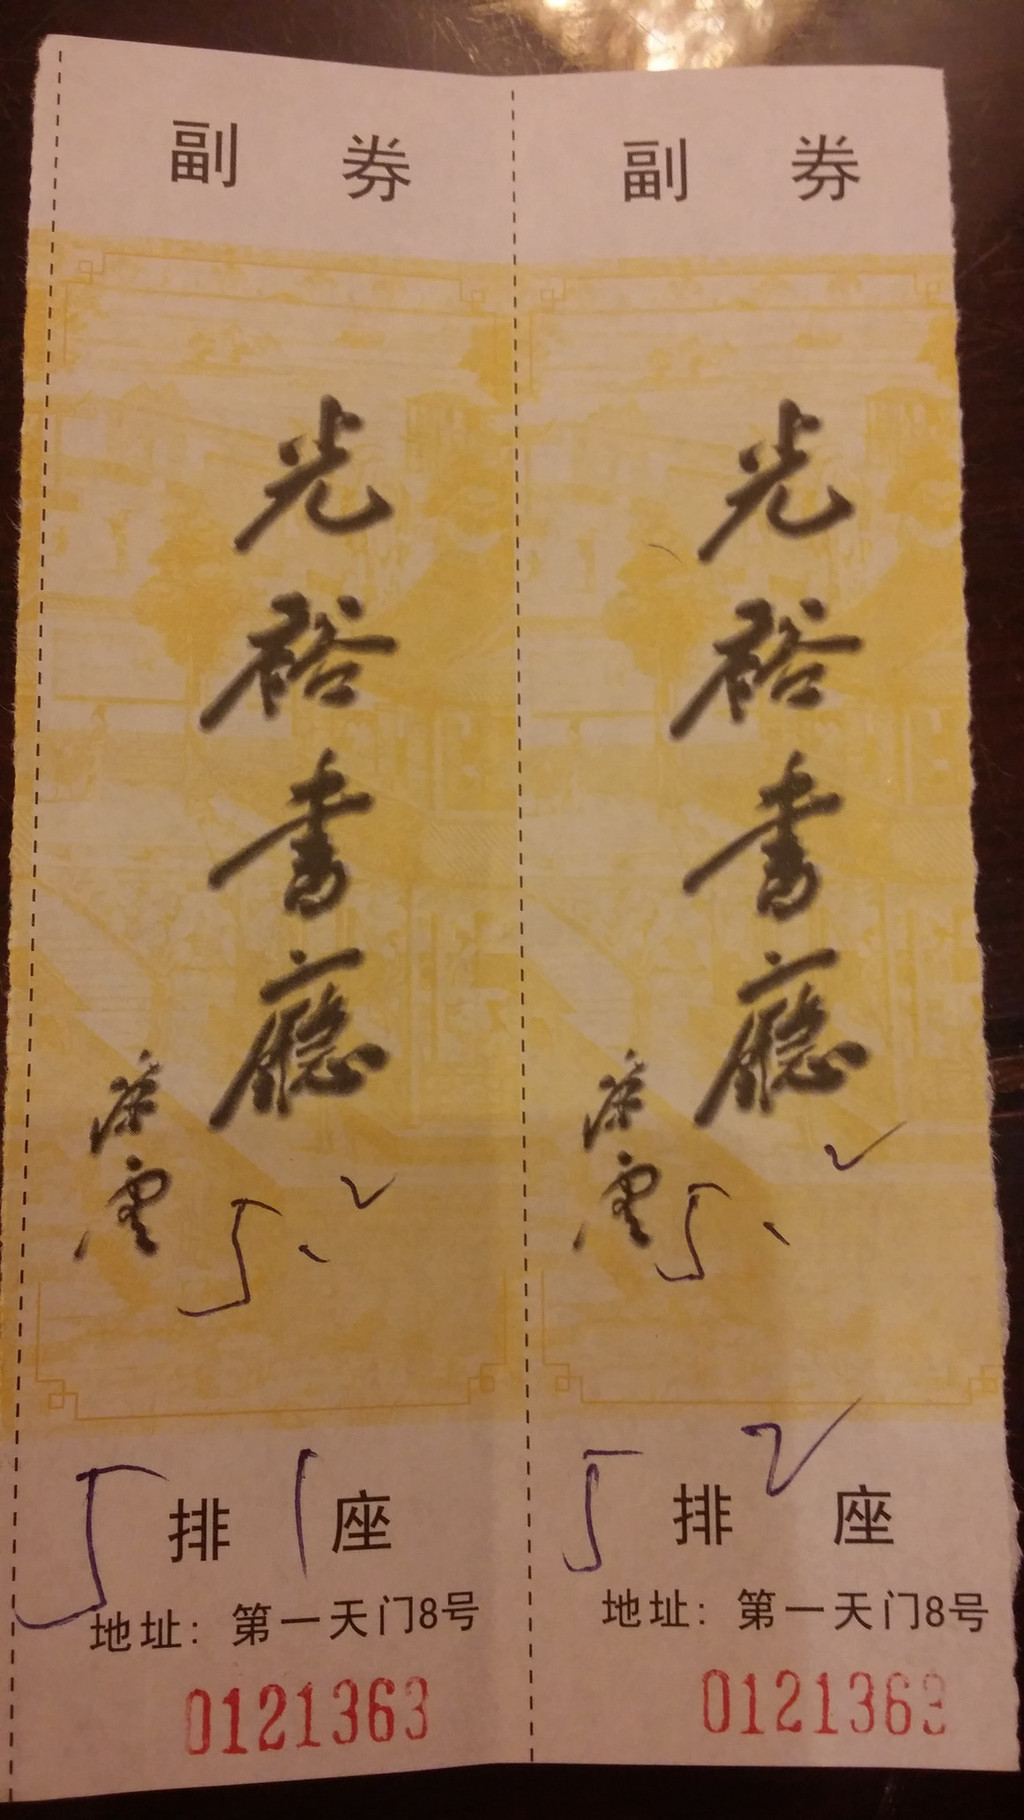 副 券
光裕书廳
陈雲
5.2
5排1座
地址：第一天门8号
0121363
副 券
光裕书廳
陈雲
5.2
5排2座
地址：第一天门8号
0121363